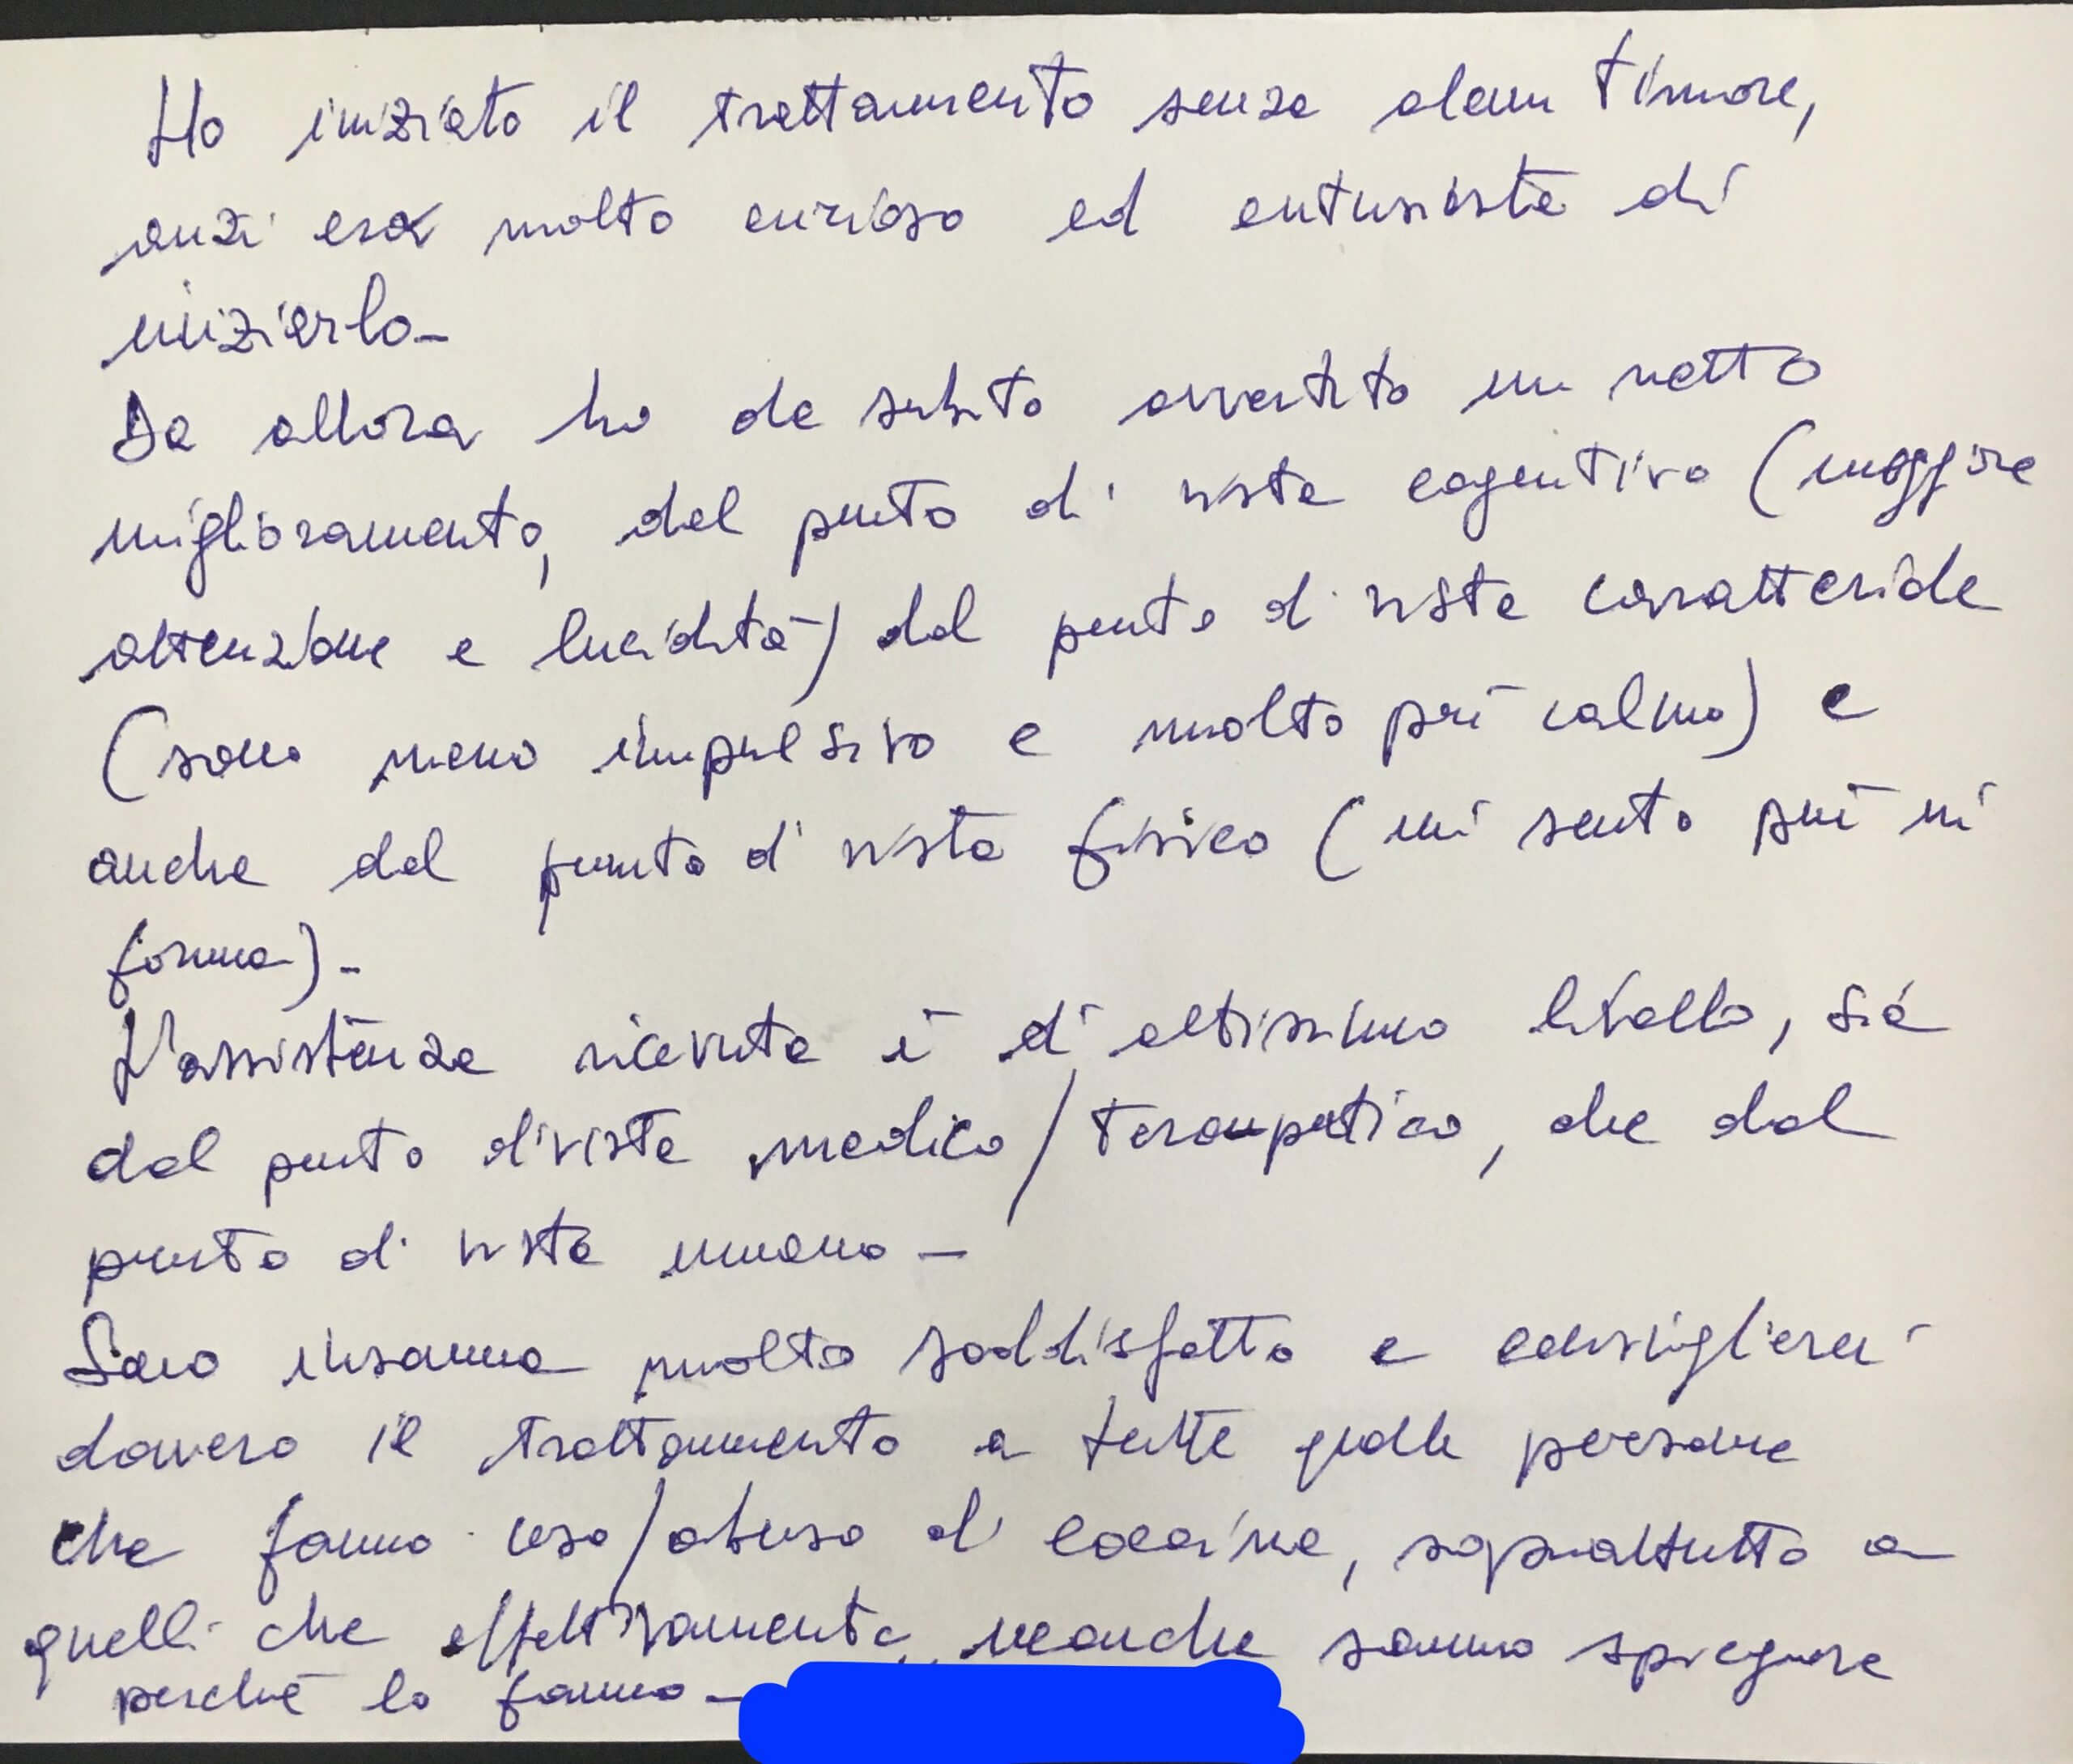 Ho iniziato il trattamento senza alcun timore,
anzi ero molto curioso ed entusiasta di
iniziarlo-
Da allora ho da subito avvertito un netto
miglioramento, dal punto di vista cognitivo (maggiore
attenzione e lucidità) dal punto di vista caratteriale
(sono meno impulsivo e molto più calmo) e
anche dal punto di vista fisico (mi sento più in
forma)-
L'assistenza ricevuta è di altissimo livello, sia
dal punto di vista medico/teraupetico, che dal
punto di vista umano-
Sono insomma molto soddisfatto e consiglierei
davvero il trattamento a tutte quelle persone
che fanno uso/abuso di cocaina, sopratutto a
quelli che effettivamente neanche sanno spiegare
perché lo fanno-